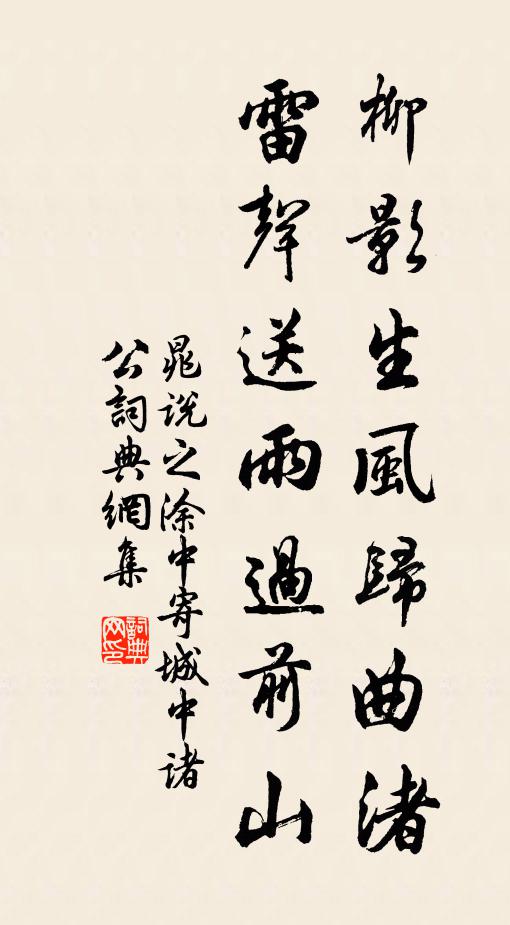 柳影生風歸曲渚
雷聲送雨過前山
晁説之涂中寄城中諸
公詞典網集
詞典
网印